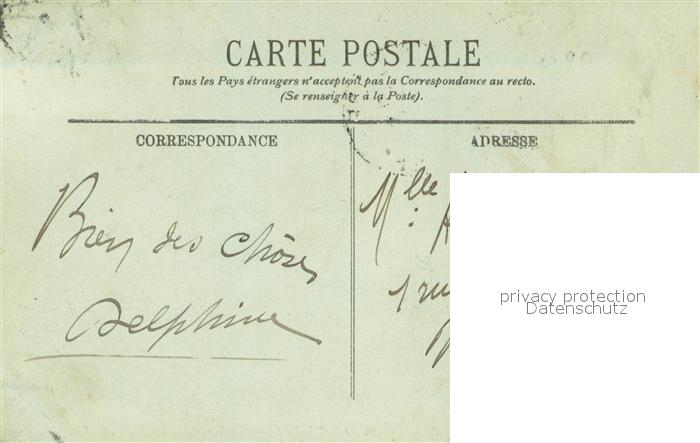 CARTE POSTALE
Tous les Pays étrangers n'acceptent pas la Correspondance au recto.
(Se renseigner à la Poste).
CORRESPONDANCE
ADRESSE
Bien des choses
Delphine
Mlle
1 rue
privacy protection
Datenschutz